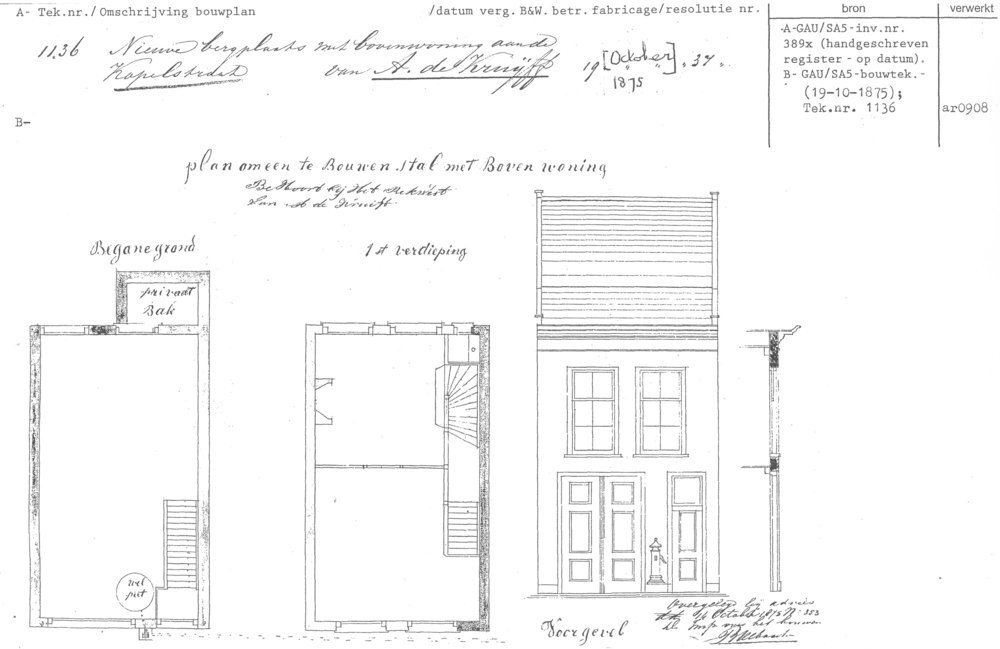 A- Tek.nr./Omschrijving bouwplan /datum verg. B&W. betr. fabricage/resolutie nr. bron verwerkt
1136 Nieuwe bergplaats met bovenwoning aan de
Kapelstraat van A. de Kruÿff 19 [October] 37
1875
A-GAU/SA5-inv.nr.
389x (handgeschreven
register - op datum).
B- GAU/SA5-bouwtek.-
(19-10-1875);
Tek.nr. 1136 ar0908
B-
plan om een te Bouwen stal met Boven woning
Be Hoort bij Het Rekwest
van A de Kruiff.
Begane grond
1 st verdieping
privaat
Bak
wel
put
Voorgevel
Overgelegd bij advies
October 1875 N: 353